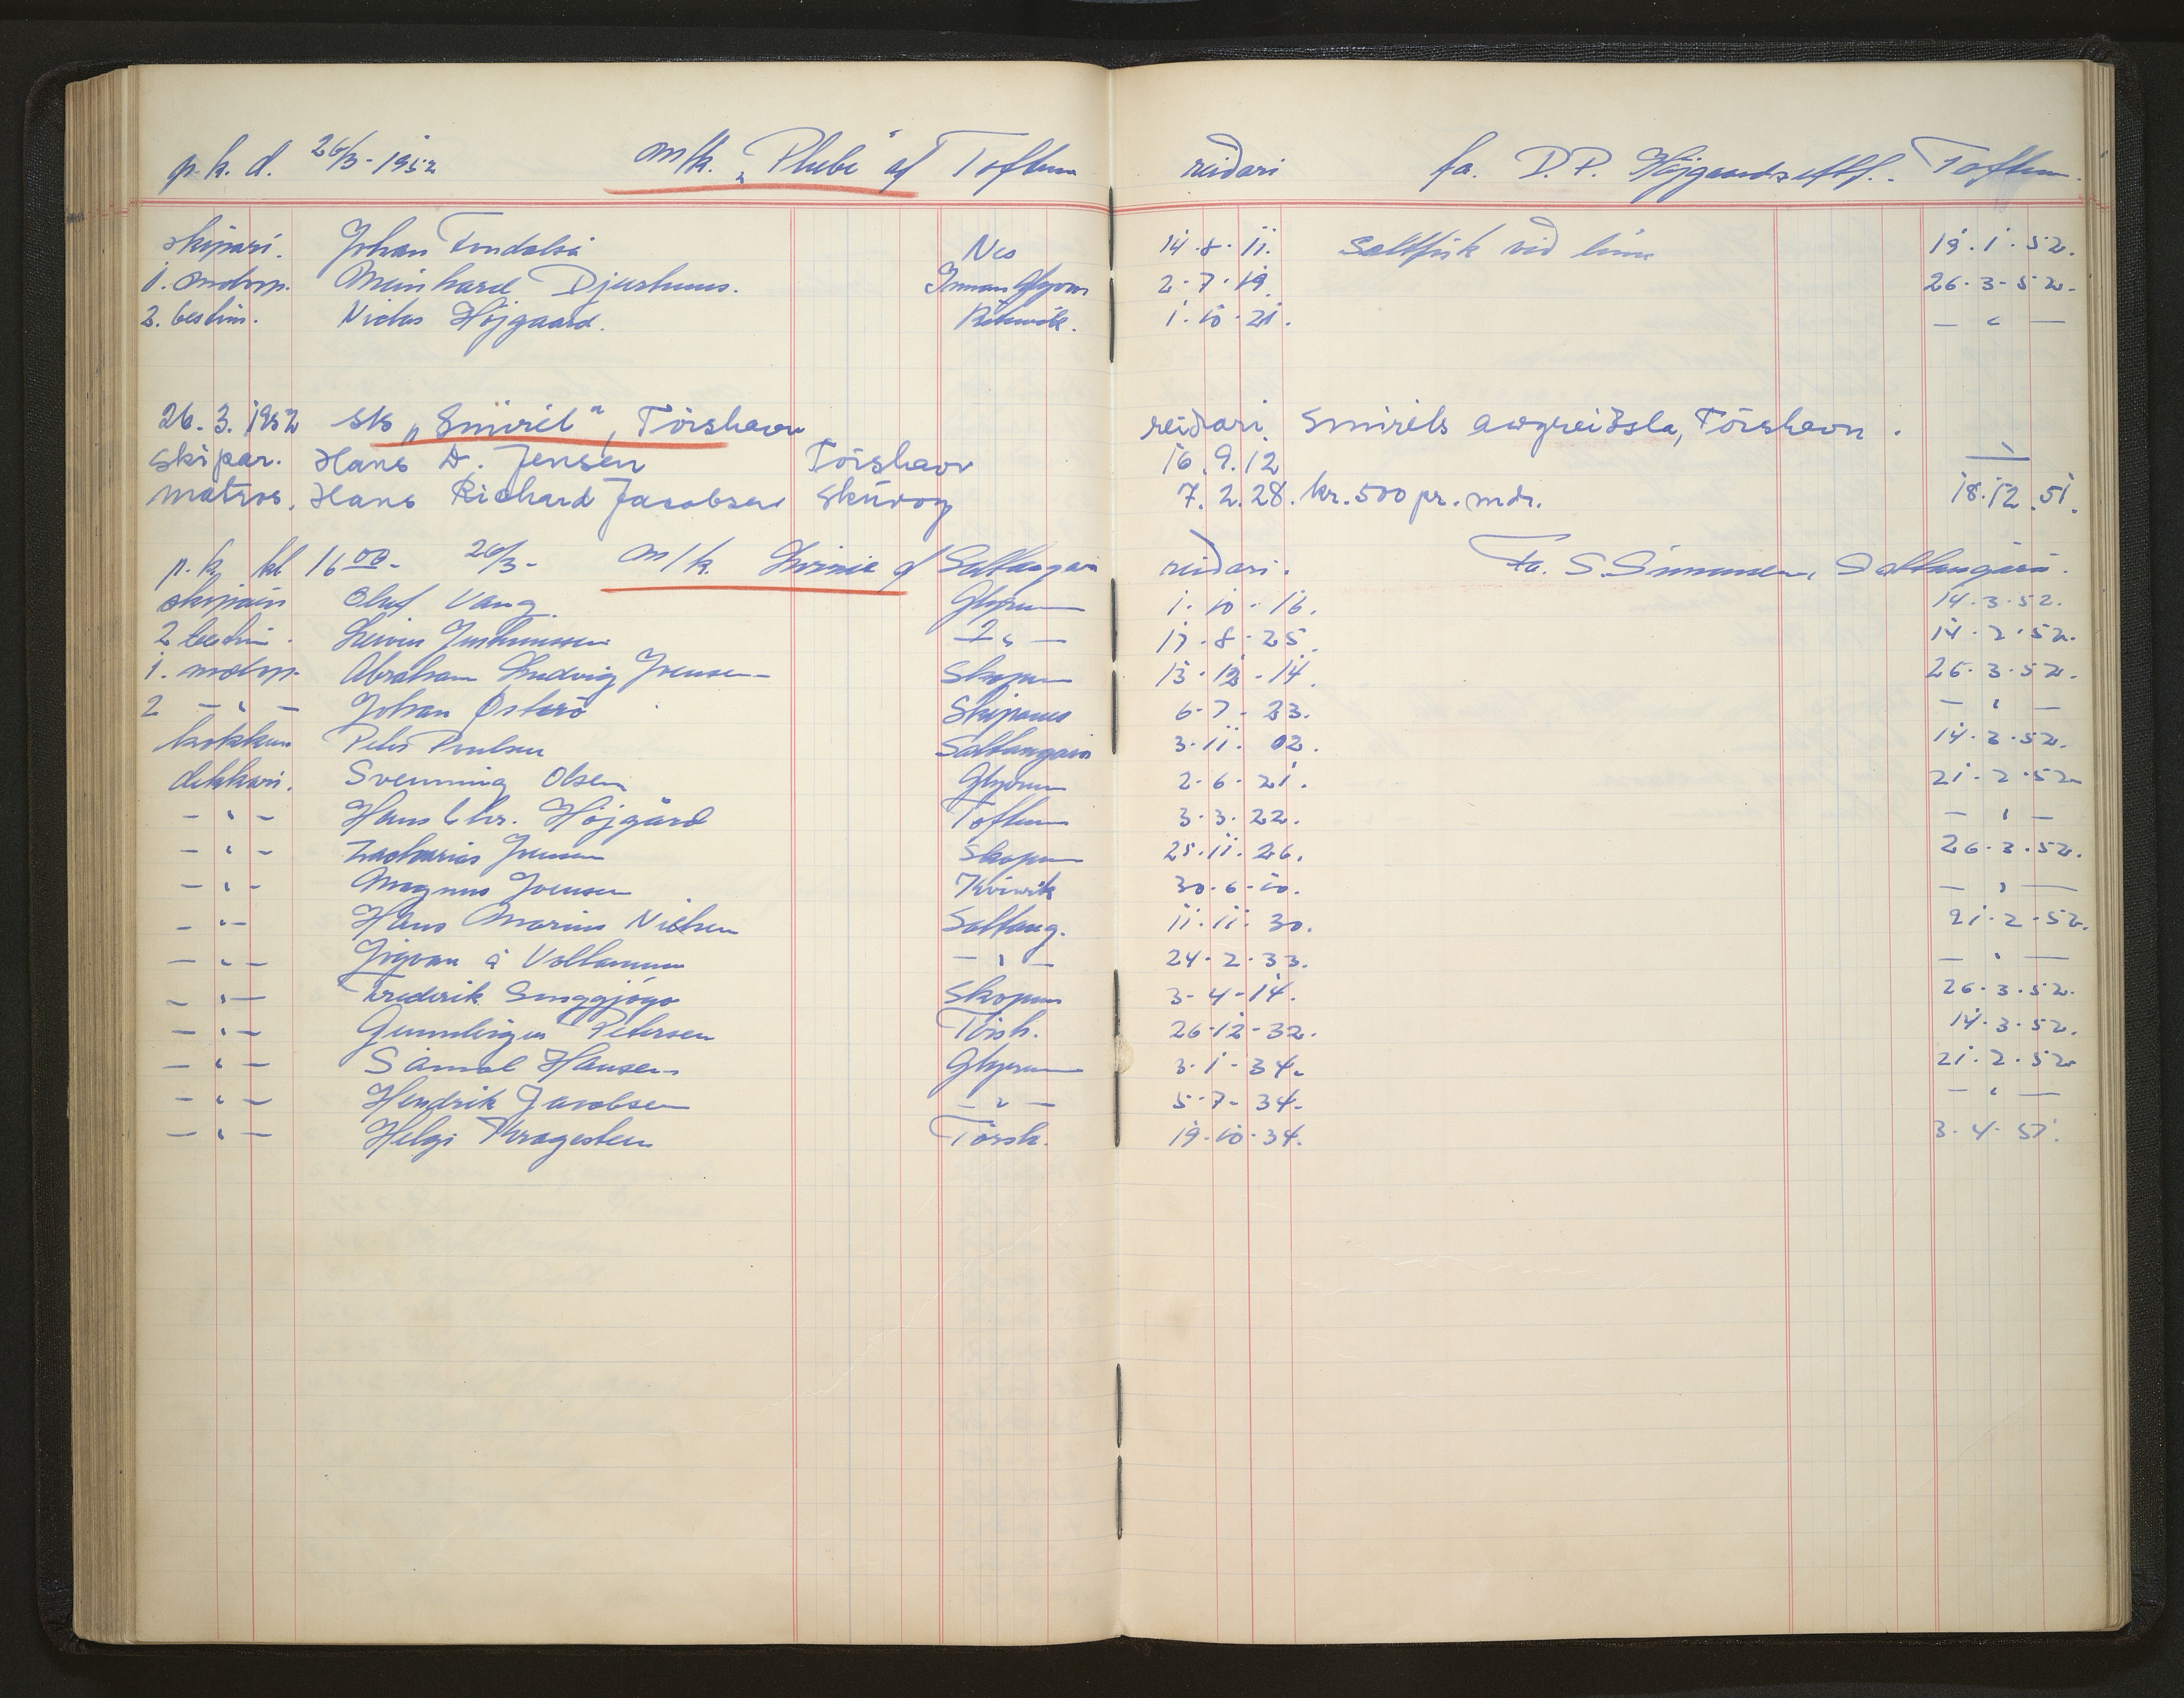 p. k. d. 26/3 - 1952 m/k. "Phebe" af Toftum reiðari fa. D. P. Højgaards eftf. Toftum.
skipari. Johan Nes 14-8-11. Saltfisk við línu 19.1.52.
1. motorp. Meinhard Djurhuus. Innan Glyvur 2-7-19. 26-3-52.
2. bestim. Niclas Højgaard. 1-10-21. — " —
26.3.1952 sk "Smiril", Tórshavn reiðari. Smirils avgreiðsla, Tórshavn.
skipar. Hans D. Jensen Tórshavn 16.9.12
matros. Hans Richard Jacobsen Skúvoy 7.2.28. kr. 500 pr. mdr. 18.12.51.
p. k. kl 16 00 - 26/3 - m/k. af Saltangará reiðari. Fa. S. Simonsen, Saltangará.
skipari Oluf Vang. Glyvrum 1-10-16. 14-3-52.
2 bestim. Justinussen — " — 17-8-25. 14-2-52.
1. motorp. Abraham Ludvig Joensen Skopun 13-12-14. 26-3-52.
2 — " — Johan Østerø Skipanes 6-7-23. — " —
kokkur Peter Poulsen Saltangará 3-11-02. 14-3-52.
dekkari. Svenning Olsen Glyvrum 2-6-21. 21-2-52
— " — Hans Chr. Højgård Toftum 3-3-22. — " —
— " — Zacharias Joensen Skopun 25-11-26. 26-3-52.
— " — Magnus Joensen Kvivik 30-6-10. — " —
— " — Hans Marius Nielsen Saltang. 11-11-30. 21-2-52.
— " — á Vollanum — " — 24-2-33. — " —
— " — Frederik Skopun 3-4-14. 26-3-52.
— " — Petersen Tórsh. 26-12-32. 14-3-52.
— " — Sámal Hansen Glyvrum 3-1-34. 21-2-52
— " — Hendrik Jacobsen — " — 5-7-34. — " —
— " — Helgi Kragesteen Tórsh. 19-10-34. 3-4-51.